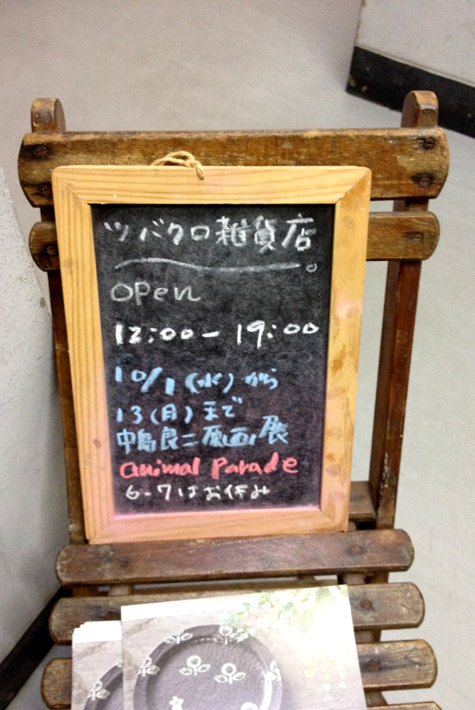 ツバクロ雑貨店
open
12:00-19:00
10/1(水)から
13(月)まで
中島良二原画展
animal parade
6-7はお休み